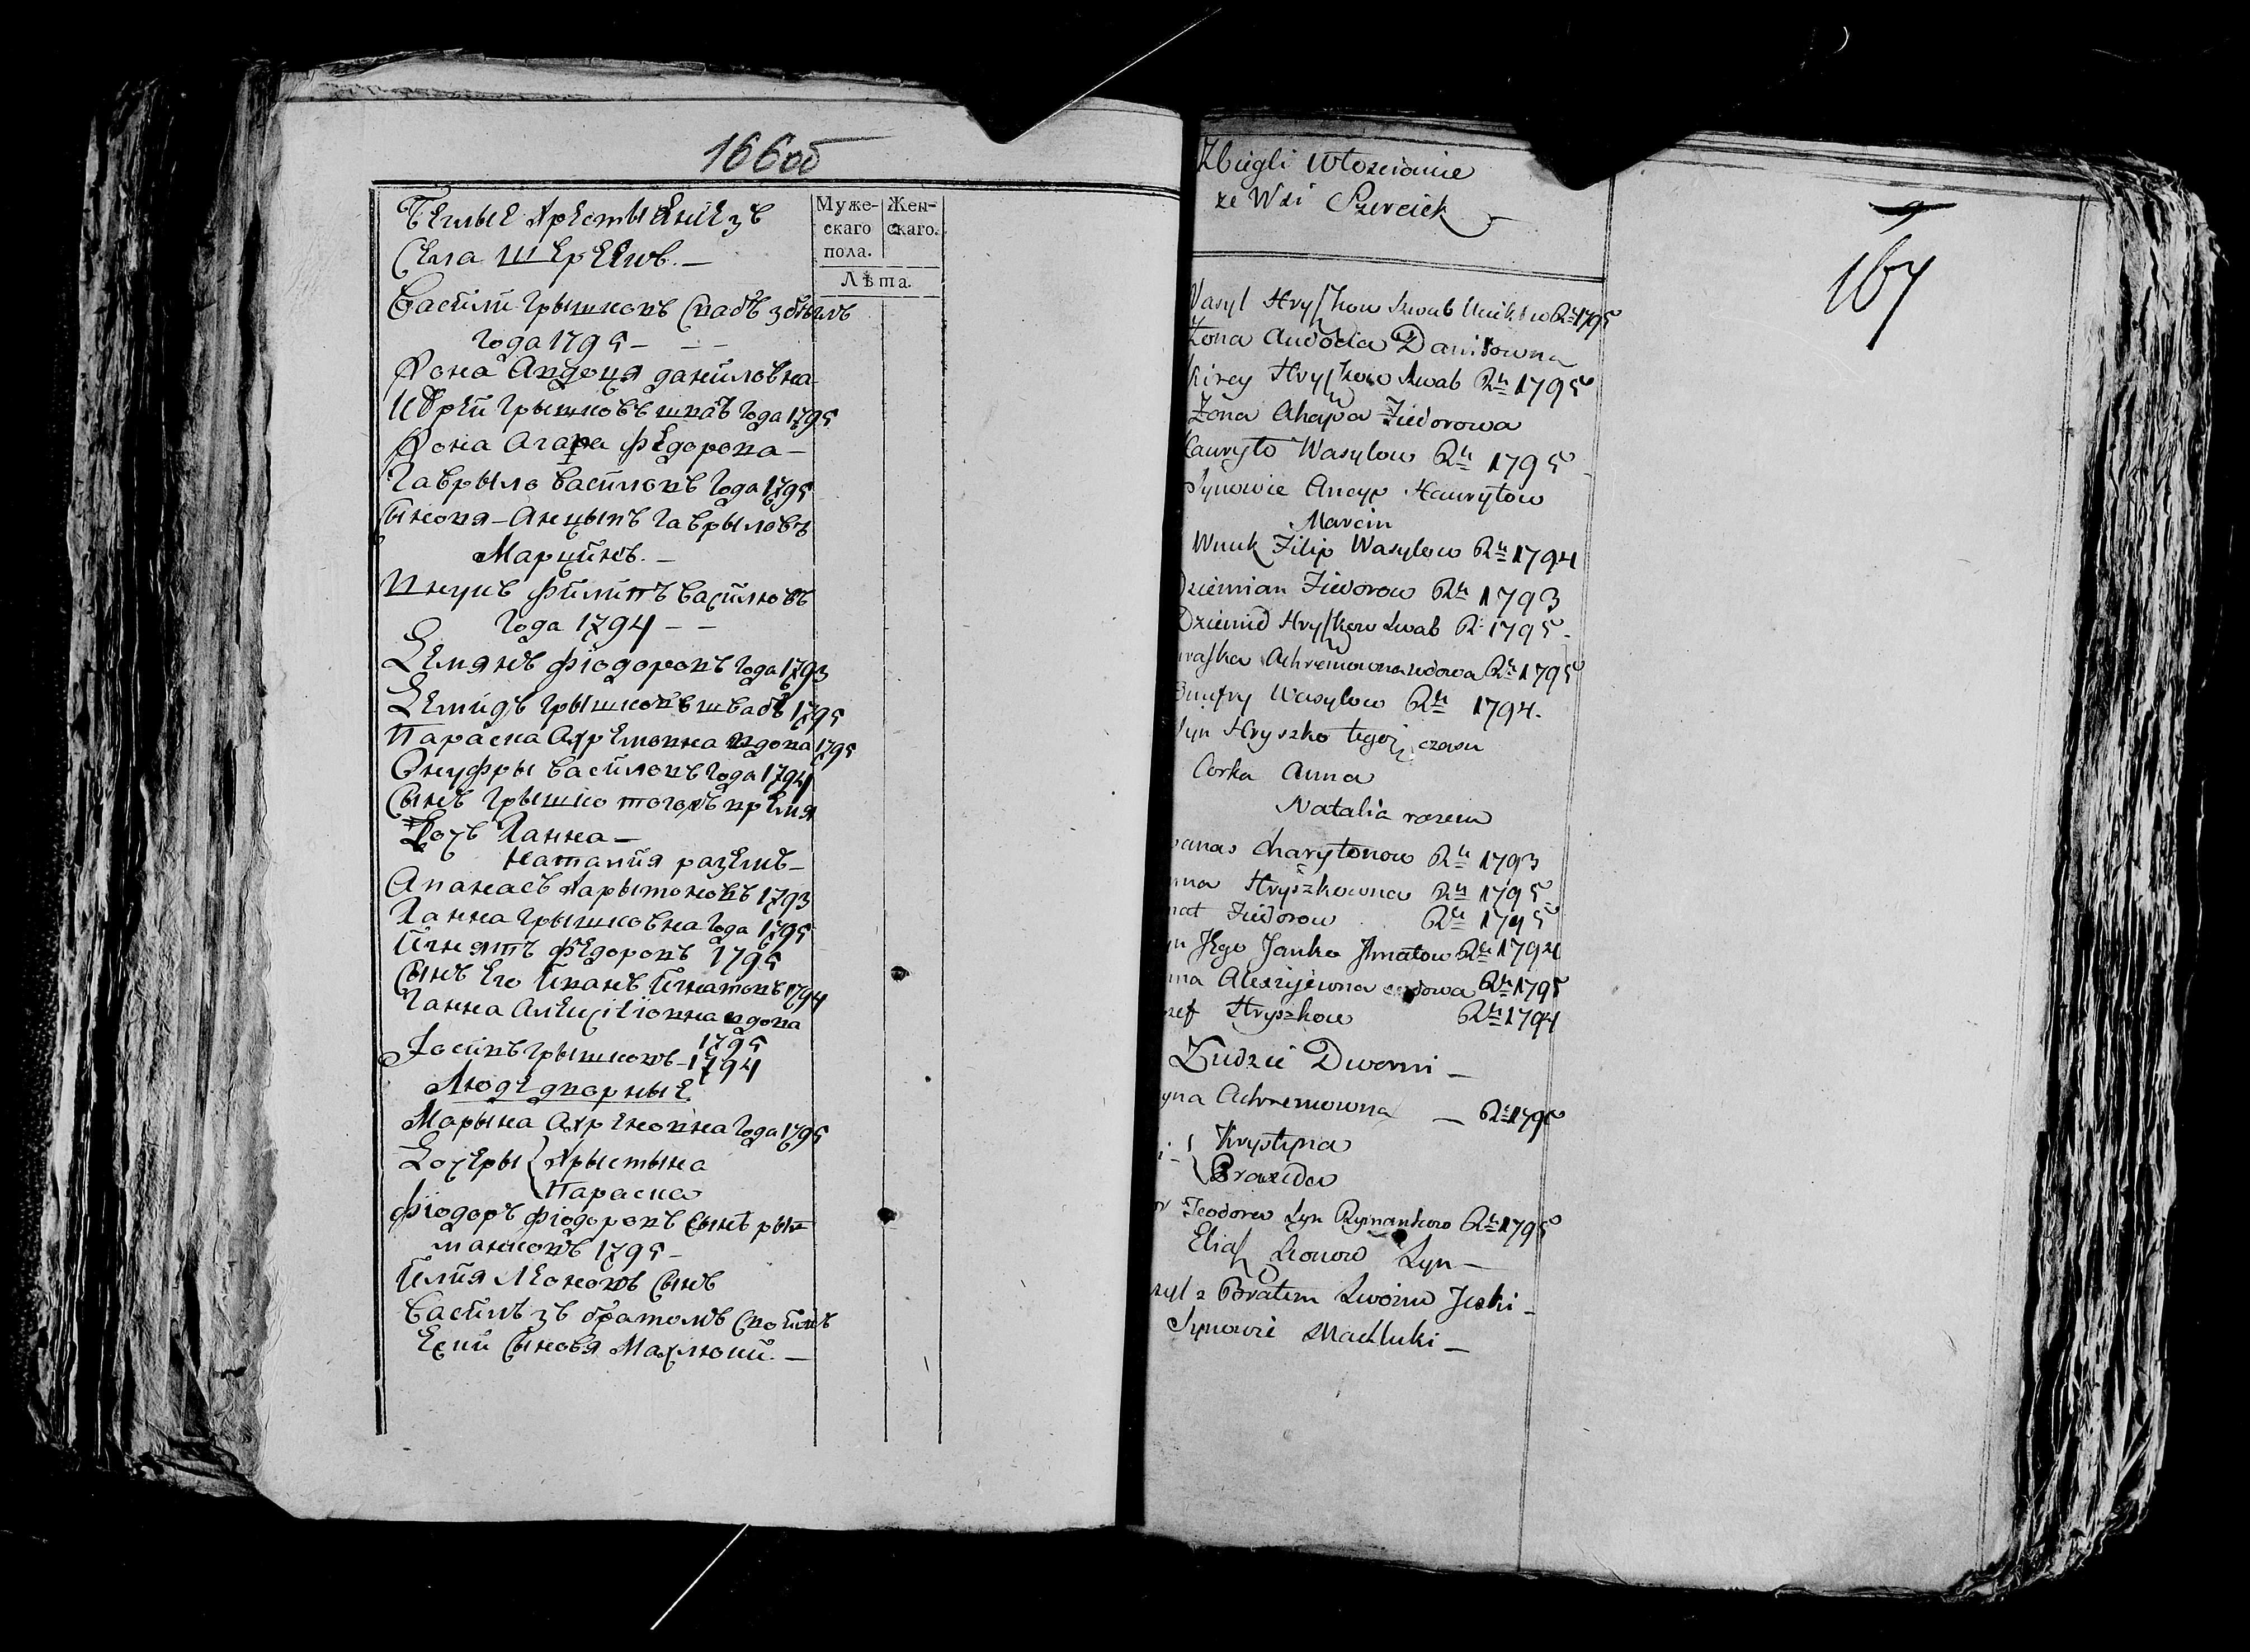 166об
Беглые хрестыяние зъ
Села Шерейов. —
Муже-
скаго
пола.
Жен-
скаго.
Лѣта.
Василй Грышковъ Свабъ збѣглъ
Года 1795 — — —
Жона Авдоця Данйловна
Грышковъ швабъ Года 1795
Жона Агапа Федорова —
Гаврыло Васйловъ Года 1795
Сыновя — Анцыпъ Гаврыловъ
Марцйнъ. —
Внукъ Фйлйпъ Васйловъ
Года 1794 — —
Демянъ Фіодоровъ Года 1793
Демйдъ Грышковъ швабъ 1795
Параска Ахремовна вдова 1795
Онуфры Васйловъ Года 1794
Сынъ Грышко тогожъ время
Доч Ганна —
Наталйя раземъ —
Апанасъ Харытоновъ 1793
Ганна Грышковна Года 1795
Йгнатъ Федоровъ 1795
Сынъ Его Йванъ Йгнатовъ 1794
Ганна вдова
1795
Іосйпъ Грышковъ — 1794
Люде дворные
Марына Ахремовна Года 1795
Дочеры { Хрыстына
Параска
Фіодоръ Фіодоровъ Сынъ рый-
манковъ 1795 —
Йлйя Леоновъ Сынъ
Васйлъ зъ братомъ Своймъ
Сыновя Махлюкй. —
Zbiegli Włoscianie
ze Wsi Szerciek
Wasyl Hryszkow Szwab 1795
Zona Audocia Daniłowna
Hryszkow Szwab Ru 1795
Zona Ahapa Fiedorowa
Hauryło Wasylow Ru 1795
Synowie Ancyp Hauryłow
Marcin
Wnuk Filip Wasylow Ru 1794
Dziemian Fiedorow Ru 1793
Dziemid Hryszkow Szwab R 1795 —
raszka Achremowna wdowa Ru 1795
Onufry Wasylow Ru 1794.
Syn Hryszko tegoż czasu
Corka Anna
Natalia razem
panas Charytonow Ru 1793
nna Hryszkowna Ru 1795
nat Fiedorow Ru 1795
yn Jego Janko Jhnatow Ru 1794
nna Alexiejewna wdowa Ru 1795
ozef Hryszkow Ru 1794
Ludzie Dworni —
yna Achremowna — Ru 1795
i — { Krystyna
Praxeda
or Teodorow Syn Rymankow Ru 1795
Eliasz Leonow Syn —
syl z Bratem Swoim Jeski —
Synowie Machluki —
167